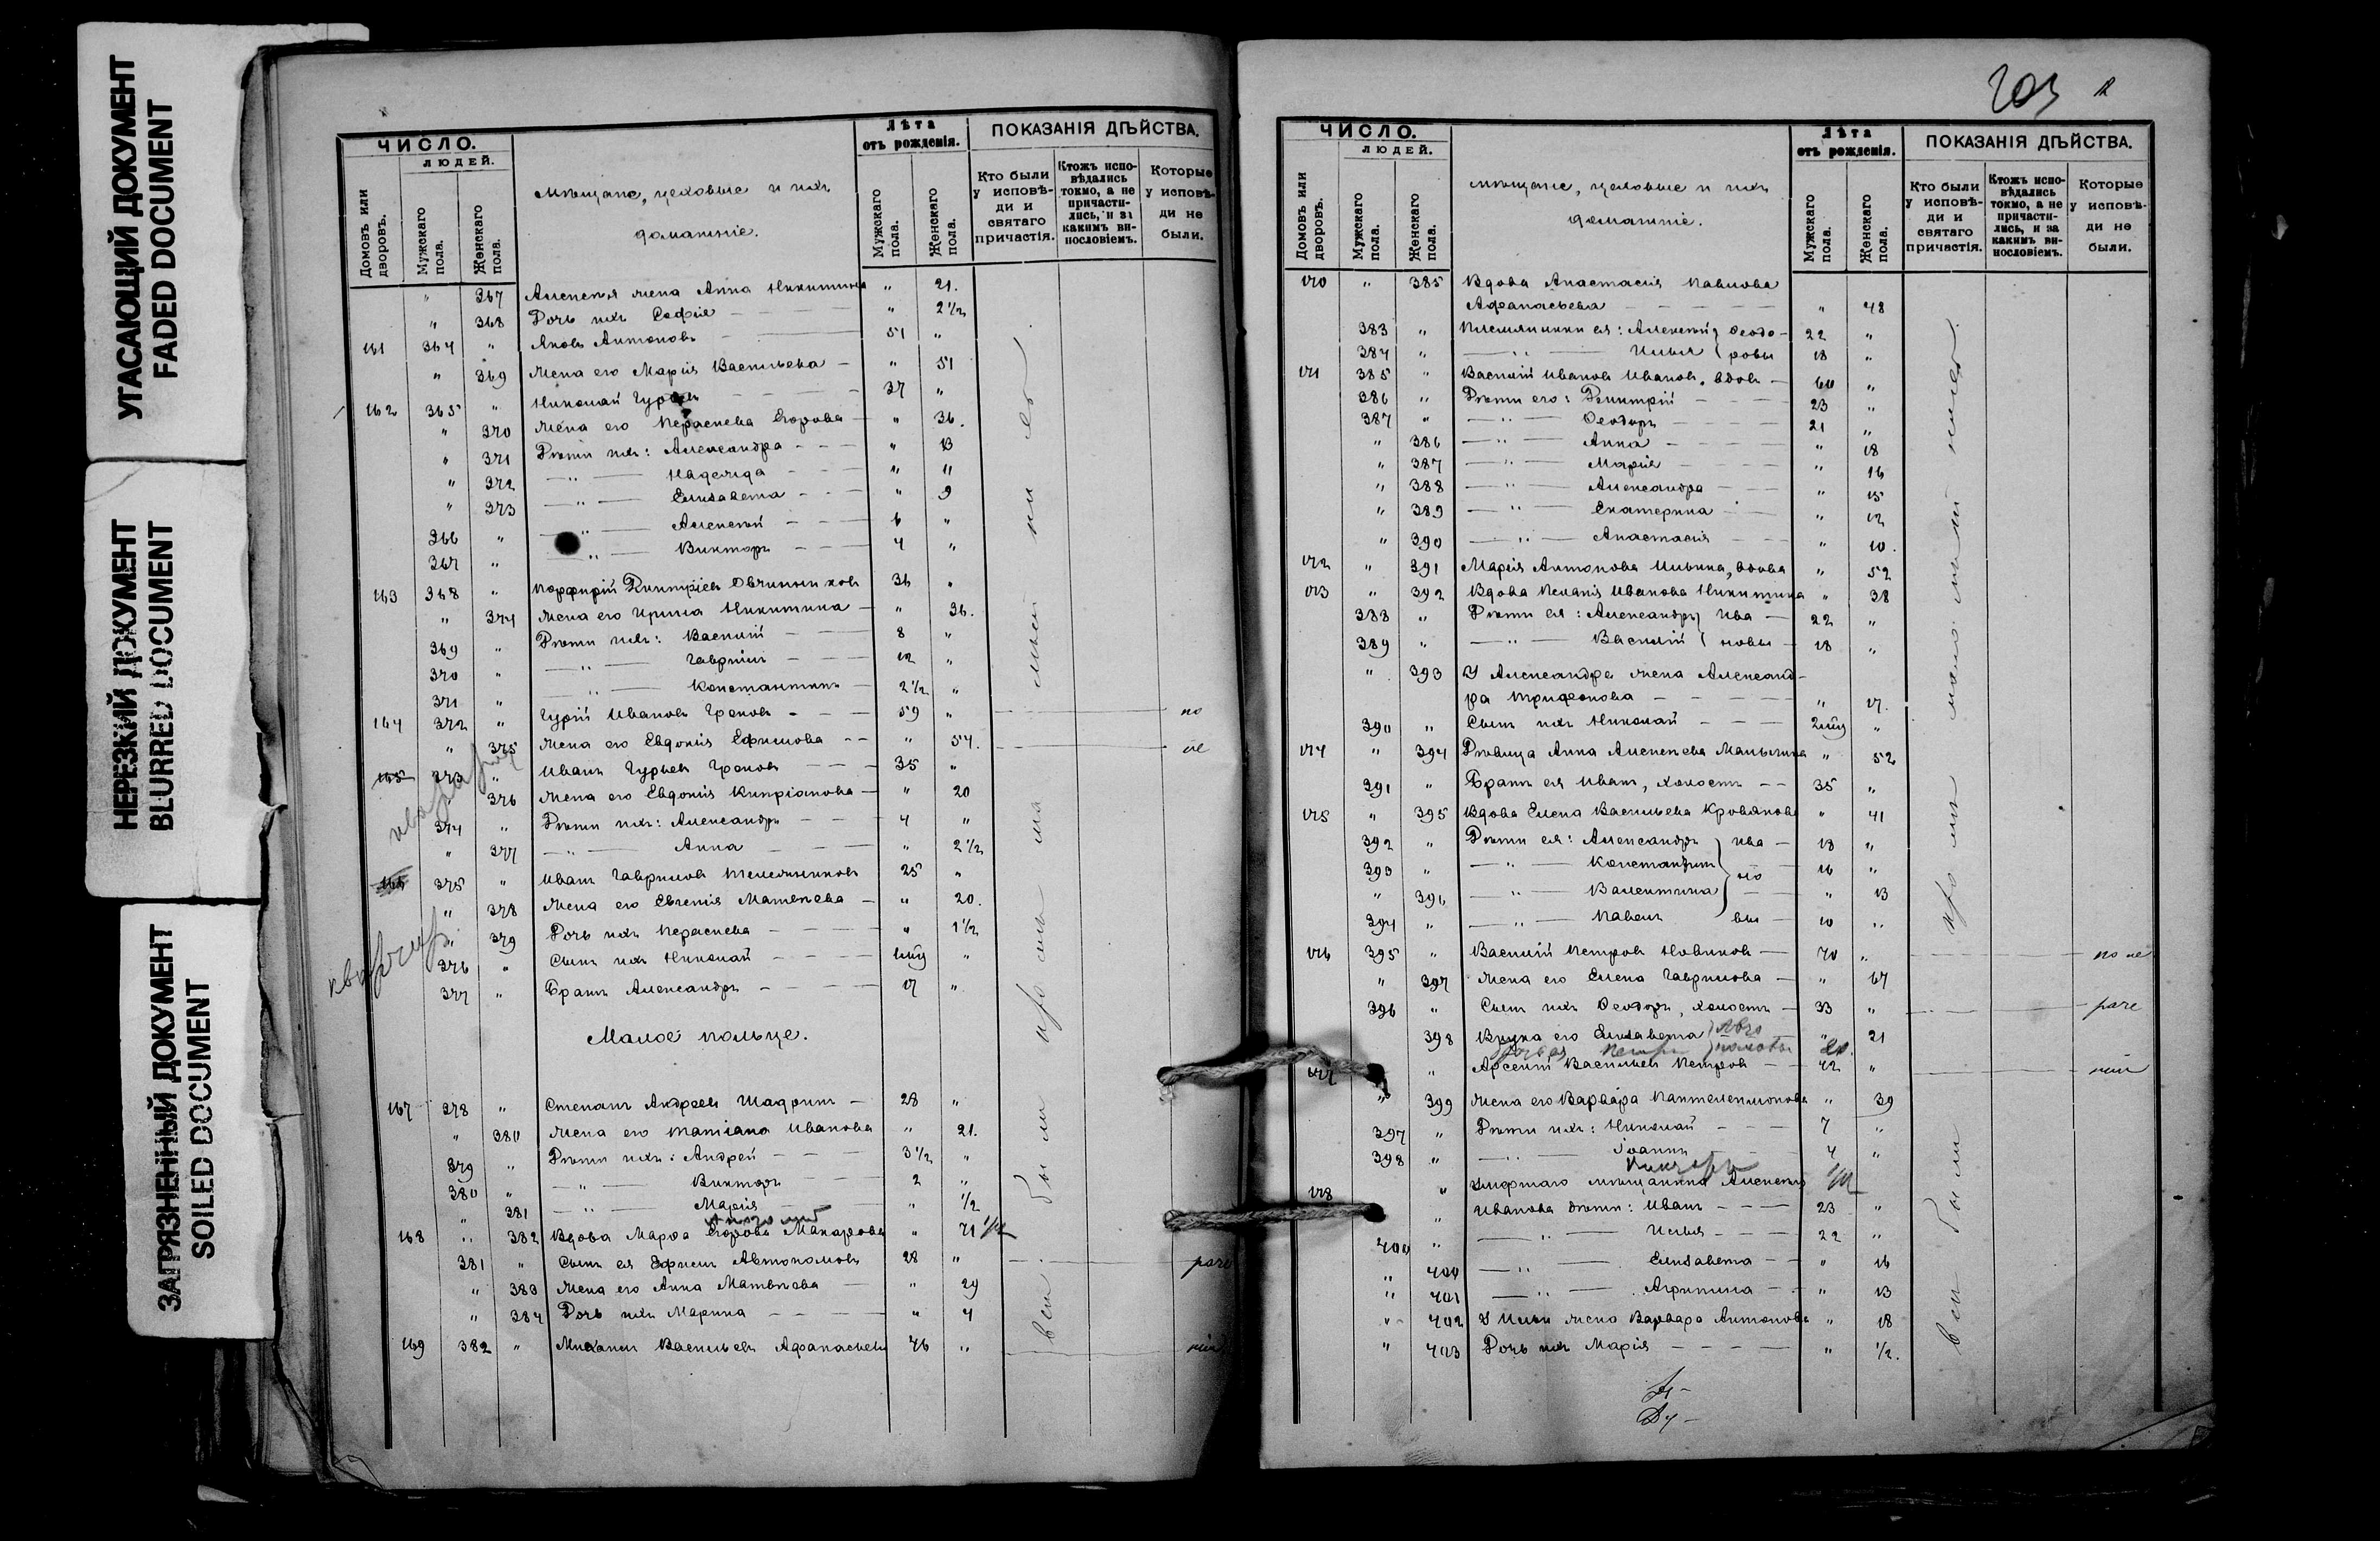 УГАСАЮЩИЙ ДОКУМЕНТ
FADED DOCUMENT
НЕРЕЗКИЙ ДОКУМЕНТ
BLURRED DOCUMENT
ЗАГРЯЗНЕННЫЙ ДОКУМЕНТ
SOILED DOCUMENT
ЧИСЛО.
ЛЮДЕЙ.
Домовъ или дворовъ.
Мужскаго пола.
Женскаго пола.
Мѣщане, цеховые и ихъ
домашніе.
Лѣта
отъ рожденія.
Мужскаго пола.
Женскаго пола.
ПОКАЗАНІЯ ДѢЙСТВА.
Кто были у исповѣ-ди и святаго причастія.
Ктожъ испо-вѣдались токмо, а не причасти-лись, и за какимъ ви-нословіемъ.
Которые у исповѣ-ди не были.
" 367 Алексѣя жена Анна Никитина " 21.
" 368 Дочь ихъ Софія " 2 1/2
161 364 " Яковъ Антоновъ 51 "
" 369 Жена его Марія Васильева " 51
162 365 " Николай Гурьевъ 37 "
" 370 Жена его Параскева Егорова " 36.
" 371 Дѣти ихъ: Александра " 13
" 372 Надежда " 11
" 373 Елизавета " 9
366 " Алексѣй 6 "
367 " Викторъ 4 "
163 368 " Порфирій Димитріевъ Овчинниковъ 36 "
" 374 Жена его Ирина Никитина " 36.
369 " Дѣти ихъ: Василій 8 "
370 " Гавріилъ 12 "
371 " Константинъ 2 1/2 "
164 372 " Гурій Ивановъ Грековъ 59 " по
" 375 Жена его Евдокія Ефимова " 54. не
165 373 " Иванъ Гурьевъ Грековъ 35 "
" 376 Жена его Евдокія Кипріанова " 20
374 " Дѣти ихъ: Александръ 4 "
" 377 Анна " 2 1/2
166 375 " Иванъ Гавриловъ 25 "
" 378 Жена его Евгенія Матвѣева " 20.
" 379 Дочь ихъ Параскева " 1 1/2
376 " Сынъ ихъ Николай "
377 " Братъ Александръ 17 "
Малое кольце.
167 378 " Степанъ Андреевъ Шадринъ 28 "
" 380 Жена его Татіана Иванова " 21.
379 " Дѣти ихъ: Андрей 3 1/2 "
380 " Викторъ 2 "
" 381 Марія " 1/2
168 " 382 Вдова Марфа Егорова Макарова " 71
381 " Сынъ ея Ефимъ Автономовъ 28 "
" 383 Жена его Анна Матвѣева " 29
" 384 Дочь ихъ Марина " 4
169 382 " Михаилъ Васильевъ Афанасьевъ 46 "
всѣ были
203
ЧИСЛО.
ЛЮДЕЙ.
Домовъ или дворовъ.
Мужскаго пола.
Женскаго пола.
Мѣщане, цеховые и ихъ
домашніе.
Лѣта
отъ рожденія.
Мужскаго пола.
Женскаго пола.
ПОКАЗАНІЯ ДѢЙСТВА.
Кто были у исповѣ-ди и святаго причастія.
Ктожъ испо-вѣдались токмо, а не причасти-лись, и за какимъ ви-нословіемъ.
Которые у исповѣ-ди не были.
170 " 385 Вдова Анастасія Павлова
Афанасьева " 48
383 " Племянники ея: Алексѣй Ѳеодо- 22 "
384 " Илья ровы 18 "
171 385 " Василій Ивановъ Ивановъ, вдовъ 60 "
386 " Дѣти его: Димитрій 23 "
387 " Ѳеодоръ 21 "
" 386 Анна " 18
" 387 Марія " 16
" 388 Александра " 15
" 389 Екатерина " 12
" 390 Анастасія " 10.
172 " 391 Марія Антонова Ильина, вдова " 52
173 " 392 Вдова Пелагія Иванова Никитина " 38
388 " Дѣти ея: Александръ Ива- 22 "
389 " Василій новы 18 "
" 393 У Александра жена Александ-
ра Трифонова " 17.
390 " Сынъ ихъ Николай "
174 " 394 Дѣвица Анна Алексѣева Малыгина " 52
391 " Братъ ея Иванъ, холостъ 35 "
175 " 395 Вдова Елена Васильева " 41
392 " Дѣти ея: Александръ Ива- 18 "
393 " Константинъ но 16 "
" 396 Валентина " 13
394 " Павелъ вы 10 "
176 395 " Василій Петровъ Новиковъ 70 "
" 397 Жена его Елена Гаврилова " 67
396 " Сынъ ихъ Ѳеодоръ, холостъ 33 "
398 Внука его Елизавета " 21
177 " Арсеній Васильевъ Петровъ 42 "
" 399 Жена его Варвара Пантелеимонова " 39
397 " Дѣти ихъ: Николай 7 "
398 " Іоаннъ 4 "
178 " Умершаго мѣщанина Алексѣя
" Иванова дѣти: Иванъ 23 "
400 " Илья 22 "
" 400 Елизавета " 16
" 401 Агрипина " 13
" 402 У Ильи жена Варвара Антонова " 18
" 403 Дочь ихъ Марія " 1/2.
всѣ были